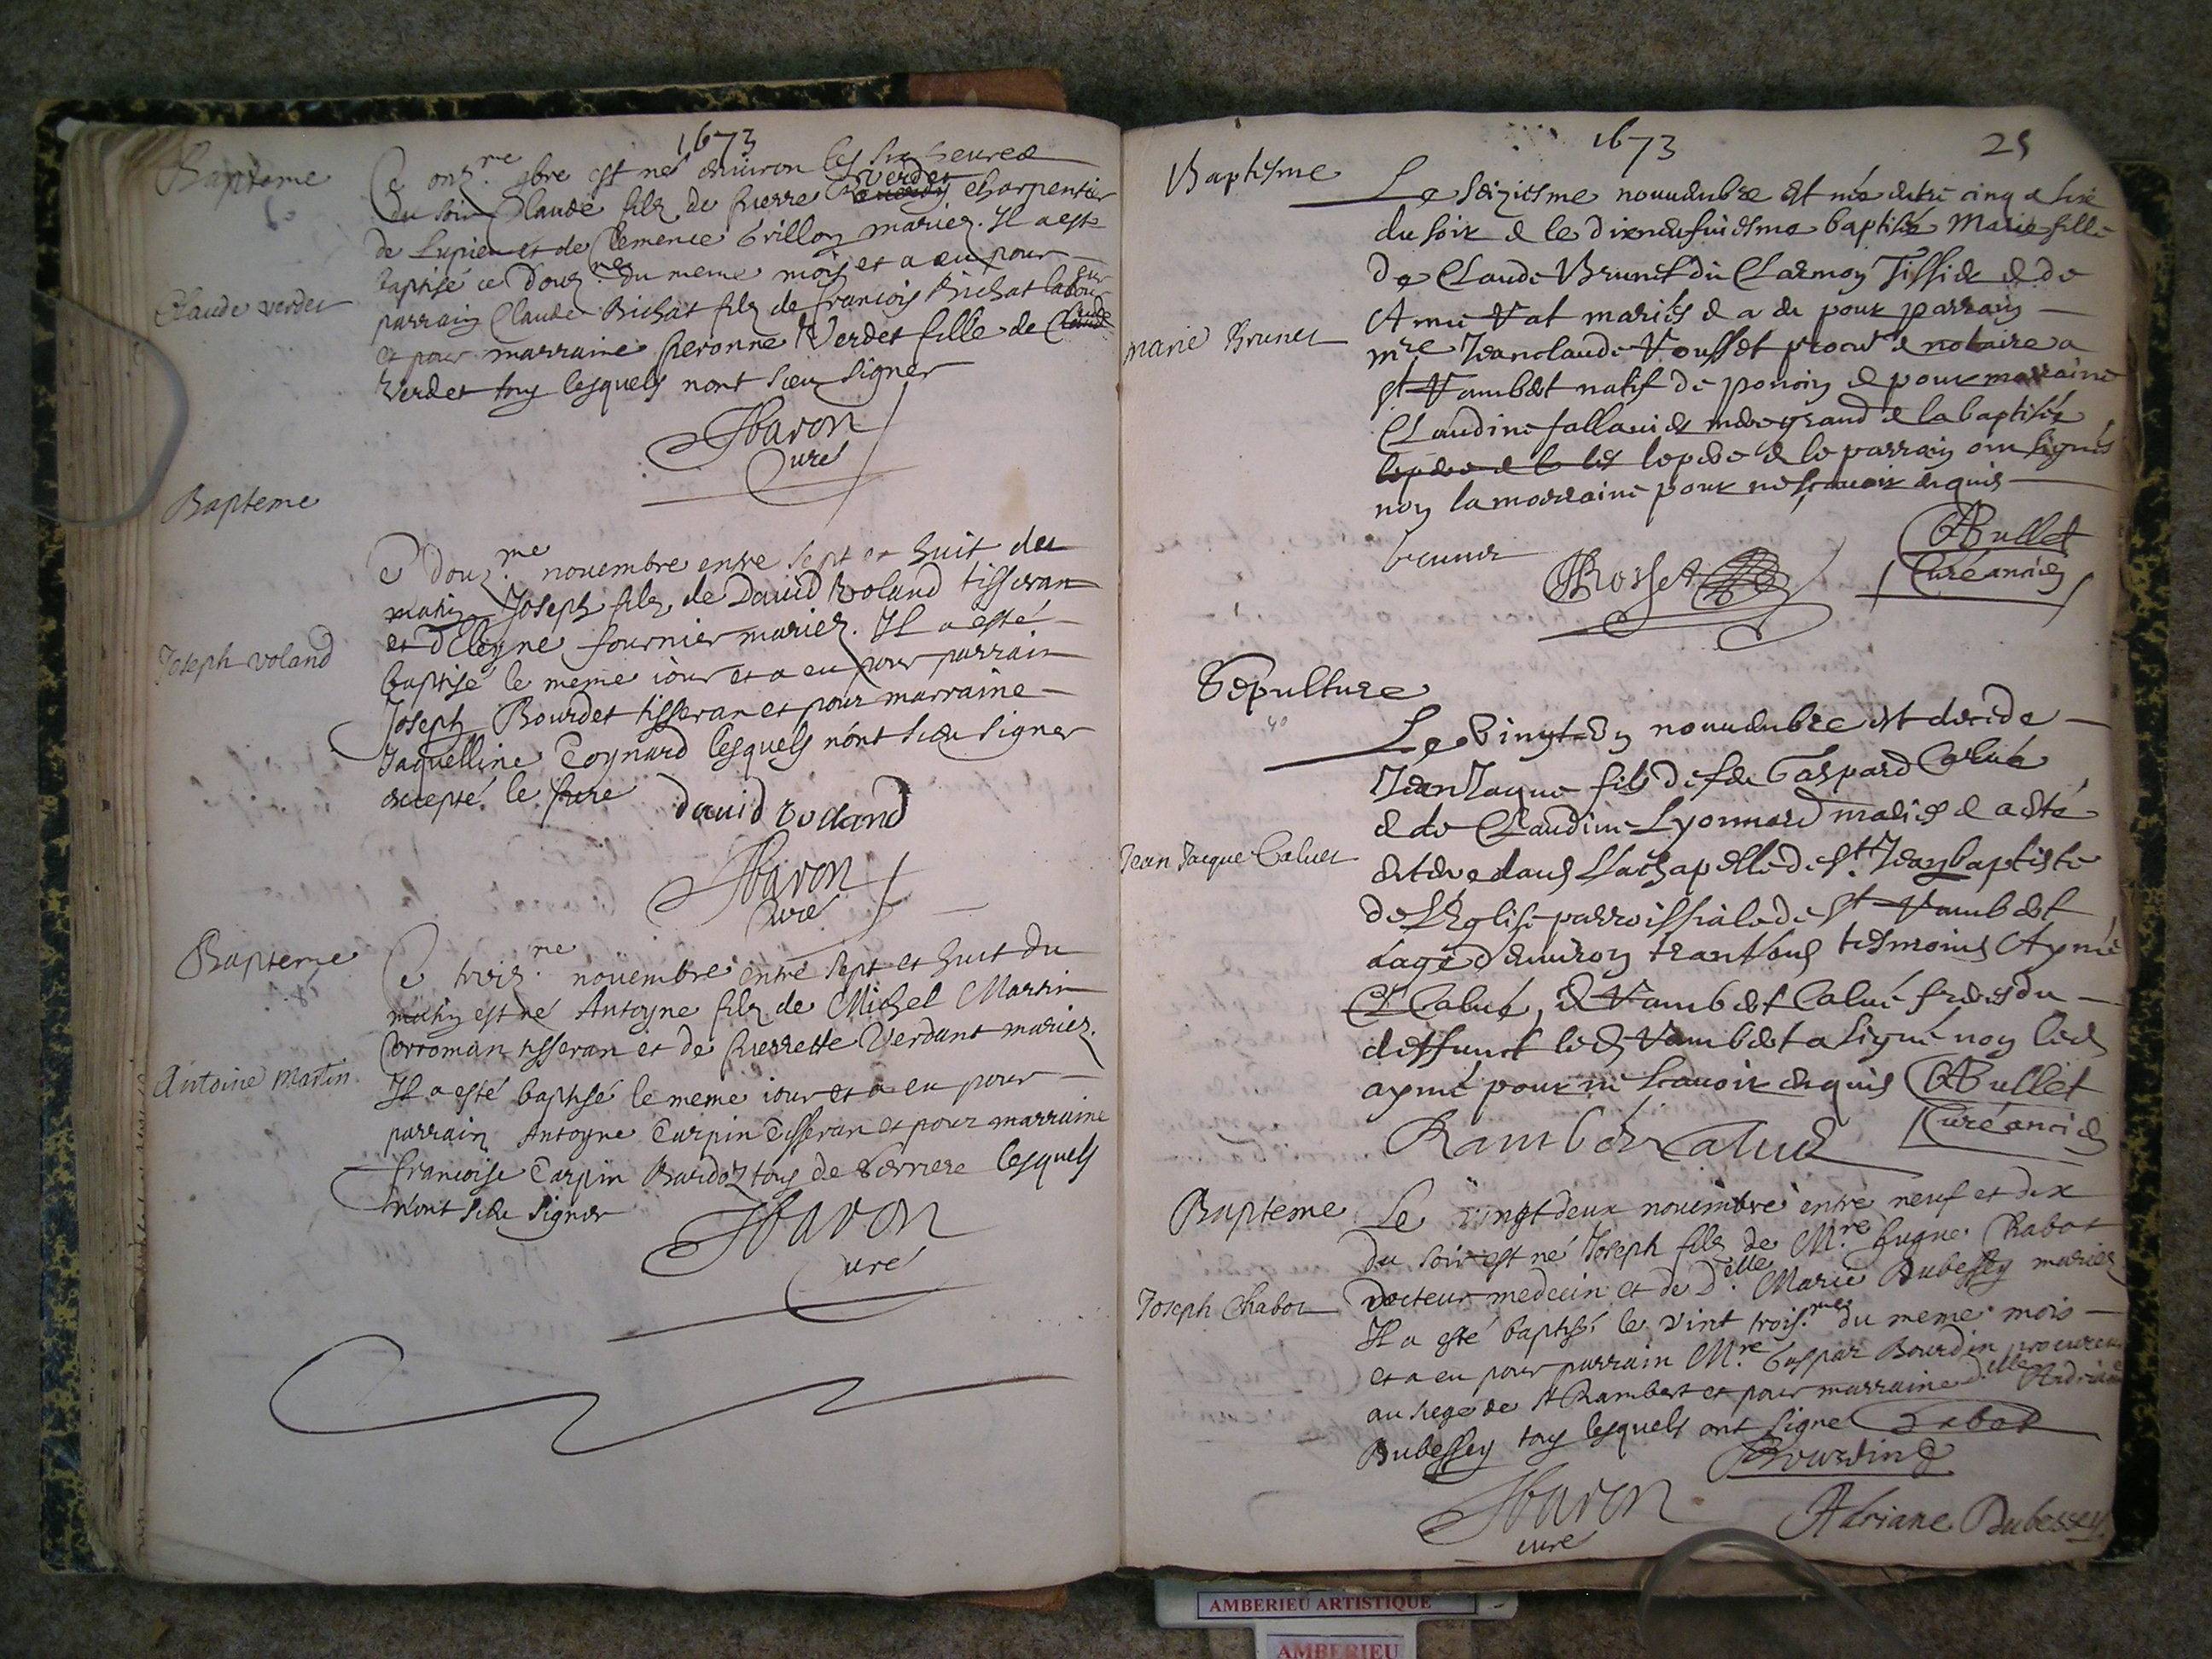 1673
Bapteme
Ce onz.me 9bre est né enuiron les six heures
du soir Claude filz de Pierre Verdet charpentier
de Lupieu et de Clemence Grillon mariez. Il a esté
baptisé ce douz.me du meme mois et a eu pour
Claude verdet
parrain Claude Bichat filz de francois Bichat laboureur
et pour marraine Peronne Verdet fille de Claude
Verdet tous lesquels nont sceu signer
Baron
Curé
Bapteme
Ce douz.me nouembre entre sept et huit du
matin Joseph filz de Dauid Voland tisseran
et d'Eleyne fournier mariez. Il a esté
Joseph voland
baptisé le meme iour et a eu pour parrain
Joseph Bourdet tisseran et pour marraine
Jaquelline Toynard lesquels n'ont sceu signer
excepté le pere
dauid Voland
Baron
Curé
Bapteme
Ce treiz.me nouembre entre sept et huit du
matin est né Antoyne filz de Michel Martin
tisseran et de Pierrette Verdant mariez.
Antoine Martin
Il a esté baptisé le meme iour et a eu pour
parrain Antoyne Carpin Tisseran et pour marraine
francoise Carpin tous de Serriere lesquels
n'ont sceu signer
Baron
Curé
1673
25
Baptesme
Le seiziesme nouuembre est née entre cinq a six
du soir & le dixneufuiesme baptisée Marie fille
de Claude Brunet du Clermon Tissier & de
Amie Vat mariés & a eu pour parrain
marie Brunet
mre Jeanclaude Rousset procur & notaire a
st Rambert natif de poncin & pour marraine
Claudine fallauier mere grand de la baptisée
le pere & le parrain ont signés
non la marraine pour ne scauoir enquis
brunet
Rosset
ABullet
Curé ancien
Sepulture
Le vingt & un nouuembre est decedé
Jean Jaque fils de feu Gaspard Calué
& de Claudine Lyonnard mariés & a esté
Jean Jacque Caluet
enterré dans La chapelle de st. Jean baptiste
de L'Eglise parroissiale de st Rambert
aagé denuiron trant ans tesmoins Aymé
Calué, & Rambert Calué freres du
deffunct led Rambert a signé non led
aymé pour ne scauoir enquis
ABullet
Curé ancien
Rambert Calué
Bapteme
Le vingt deux nouembre entre neuf et dix
du soir est né Joseph filz de M.re hugue Chabot
Joseph Chabot
Docteur medecin et de D.elle Marie Dubessey mariez
Il a esté baptisé le vint trois.me du meme mois
et a eu pour parrain M.re Gaspar Bourdin procureur
au siege de st Rambert et pour marraine d.elle Adriane
Dubessey tous lesquels ont signé
Chabot
Bourdin
Baron
curé
Adriane Dubessey
AMBERIEU ARTISTIQUE
AMBERIEU